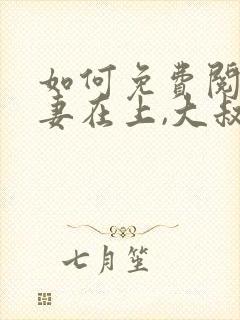 如何免費閱
妻在上,大叔
七月笙